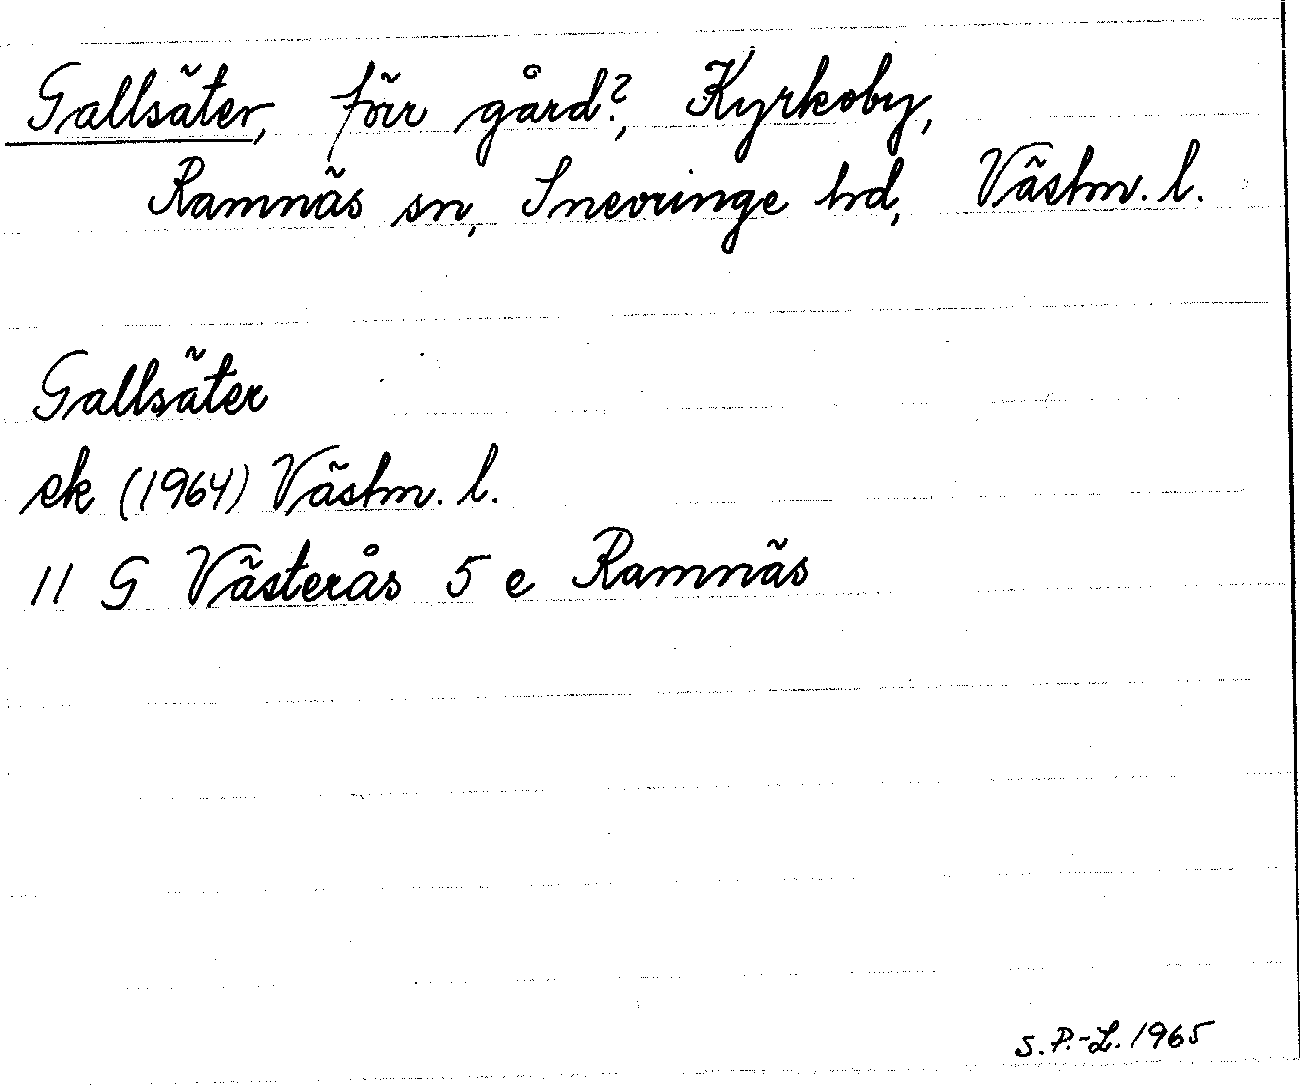 Gallsäter, förr gård?, Kyrkoby,
Ramnäs sn, Snevringe hd, Västm. l.
Gallsäter
ek (1964) Västm. l.
11 G Västerås 5 e Ramnäs
S. P.-L. 1965